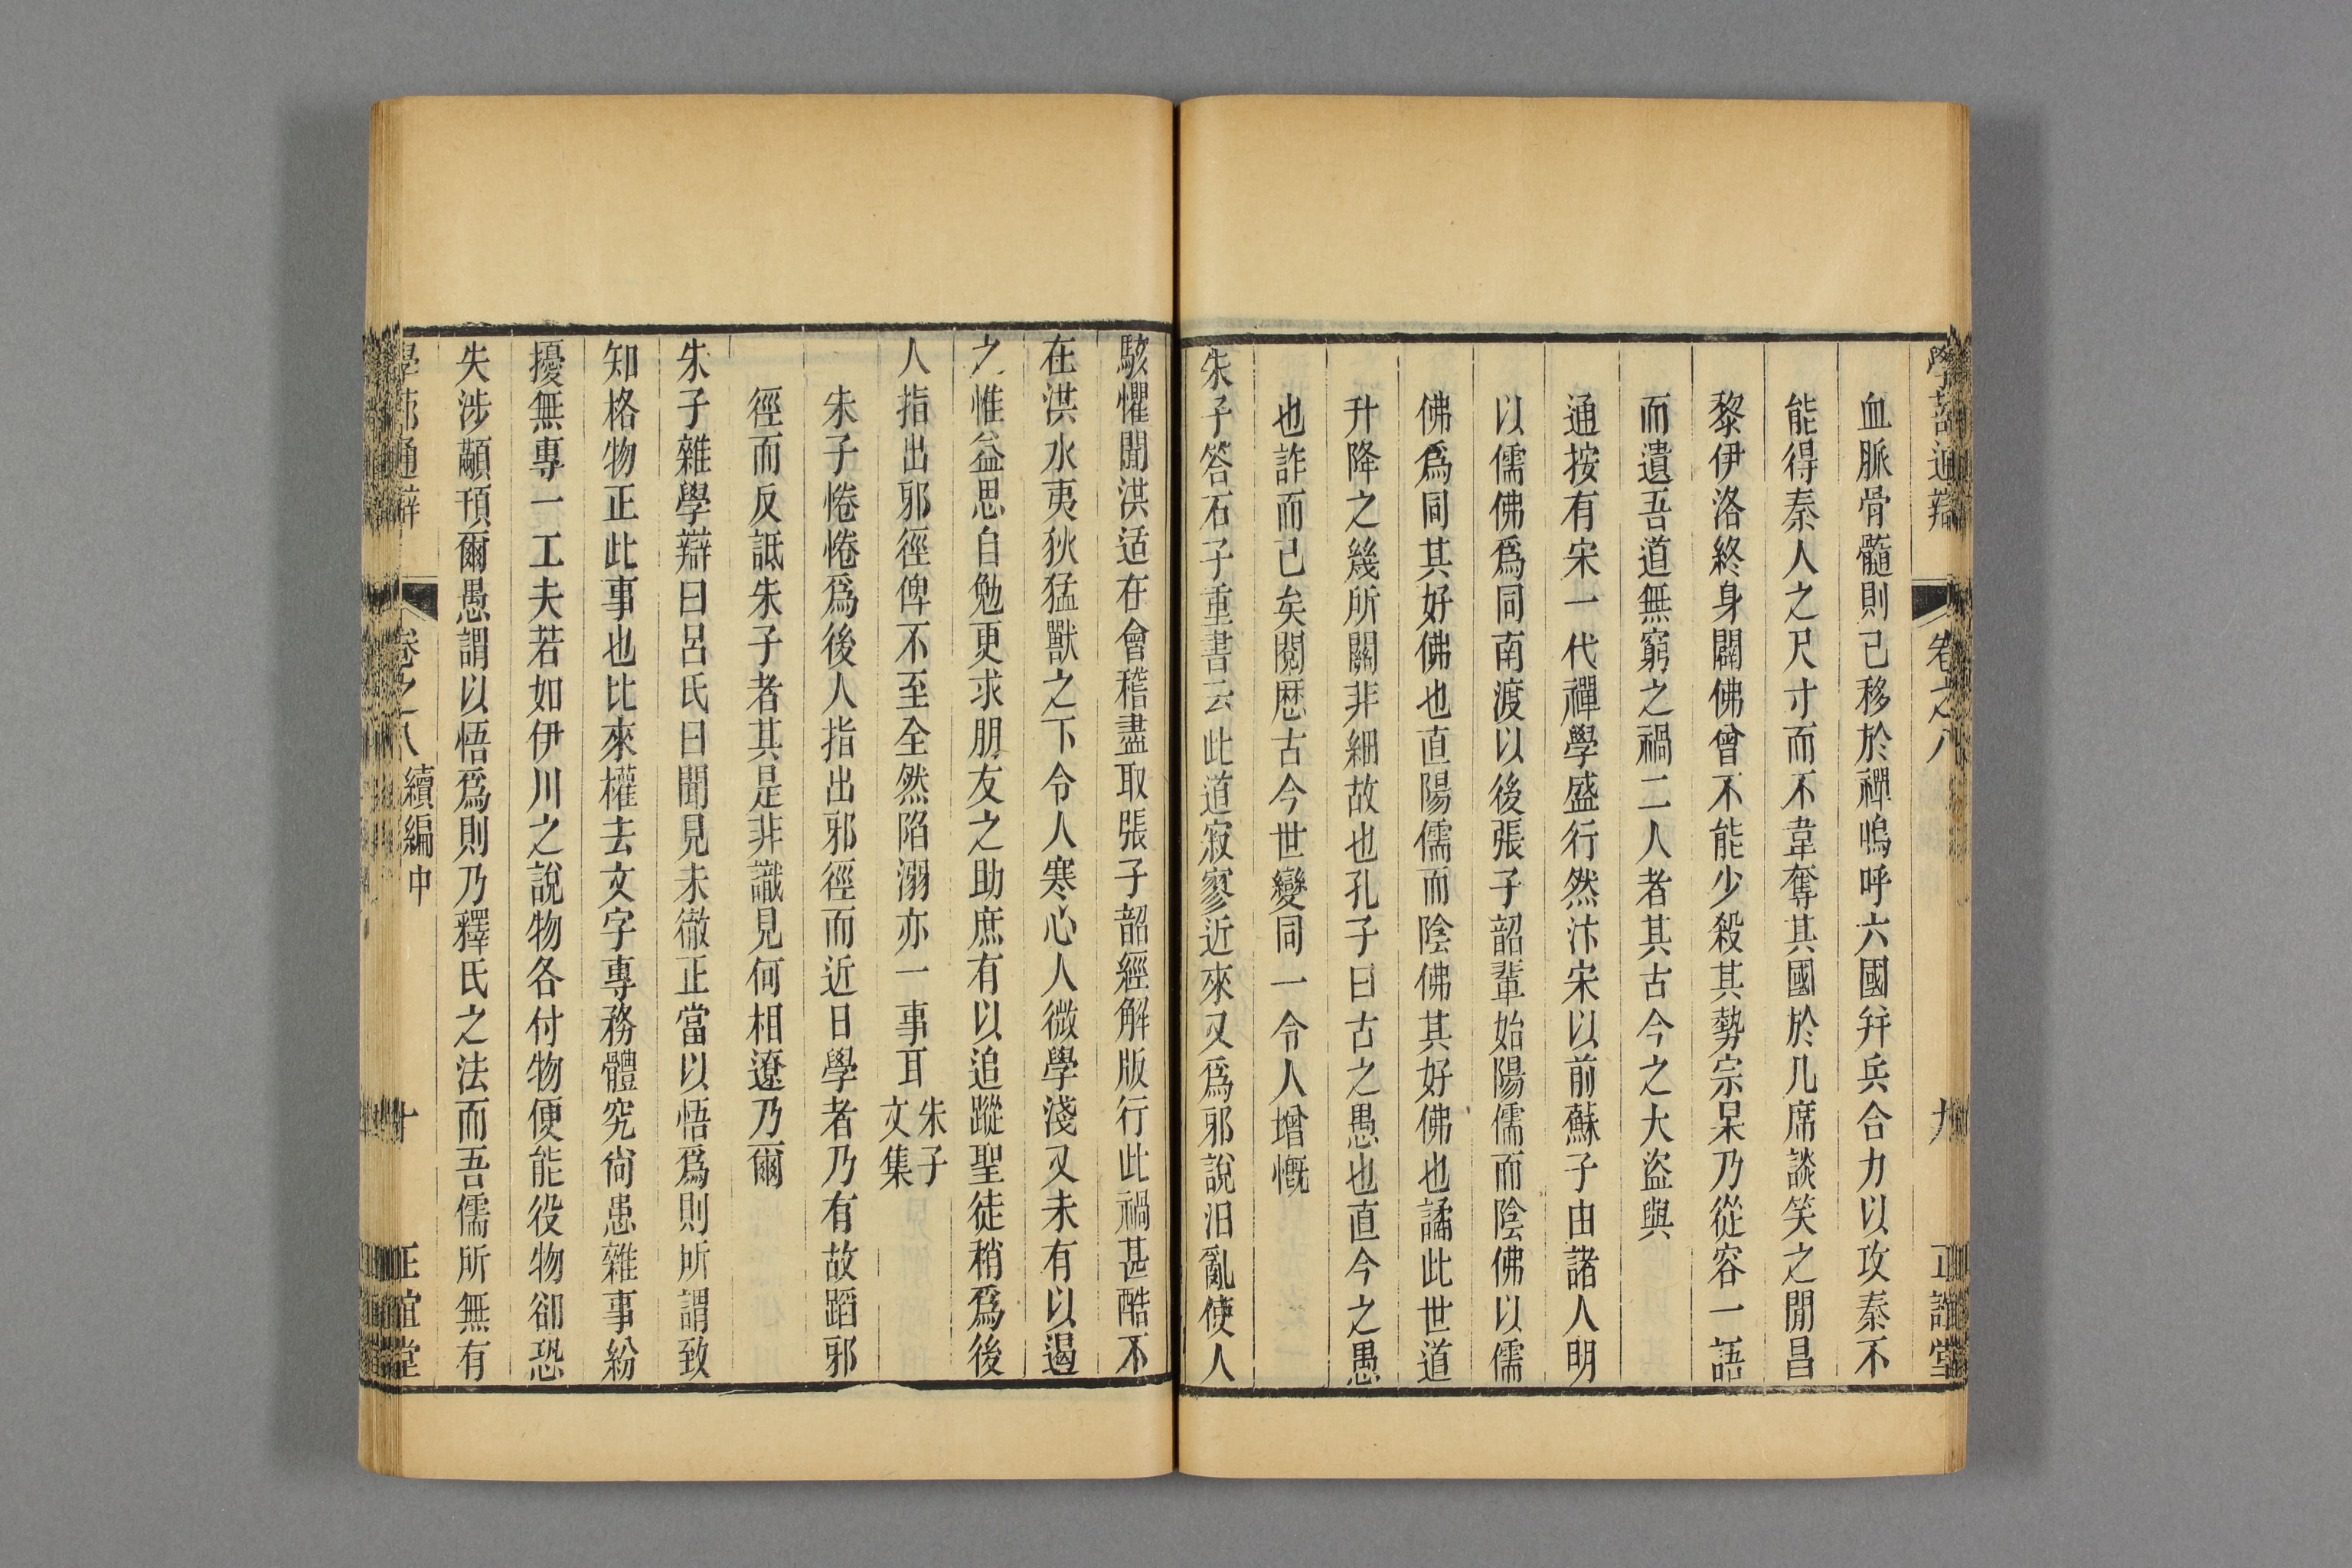 學蔀通辯 卷之八 九 正誼堂
血脈骨髓則已移於禪嗚呼六國并兵合力以攻秦不
能得秦人之尺寸而不韋奪其國於几席談笑之閒昌
黎伊洛終身闢佛曾不能少殺其勢宗杲乃從容一語
而遺吾道無窮之禍二人者其古今之大盜與
通按有宋一代禪學盛行然汴宋以前蘇子由諸人明
以儒佛爲同南渡以後張子韶輩始陽儒而陰佛以儒
佛爲同其好佛也直陽儒而陰佛其好佛也譎此世道
升降之幾所關非細故也孔子曰古之愚也直今之愚
也詐而已矣閱歷古今世變同一令人增慨
朱子答石子重書云此道寂寥近來又爲邪說汨亂使人
駭懼聞洪适在會稽盡取張子韶經解版行此禍甚酷不
在洪水夷狄猛獸之下令人寒心人微學淺又未有以遏
之惟益思自勉更求朋友之助庶有以追蹤聖徒稍爲後
人指出邪徑俾不至全然陷溺亦一事耳 朱子文集
朱子惓惓爲後人指出邪徑而近日學者乃有故蹈邪
徑而反詆朱子者其是非識見何相遼乃爾
朱子雜學辯曰呂氏曰聞見未徹正當以悟爲則所謂致
知格物正此事也比來權去文字專務體究尙患雜事紛
擾無專一工夫若如伊川之說物各付物便能役物卻恐
失涉顢頇爾愚謂以悟爲則乃釋氏之法而吾儒所無有
學蔀通辯 卷之八 續編中 十 正誼堂